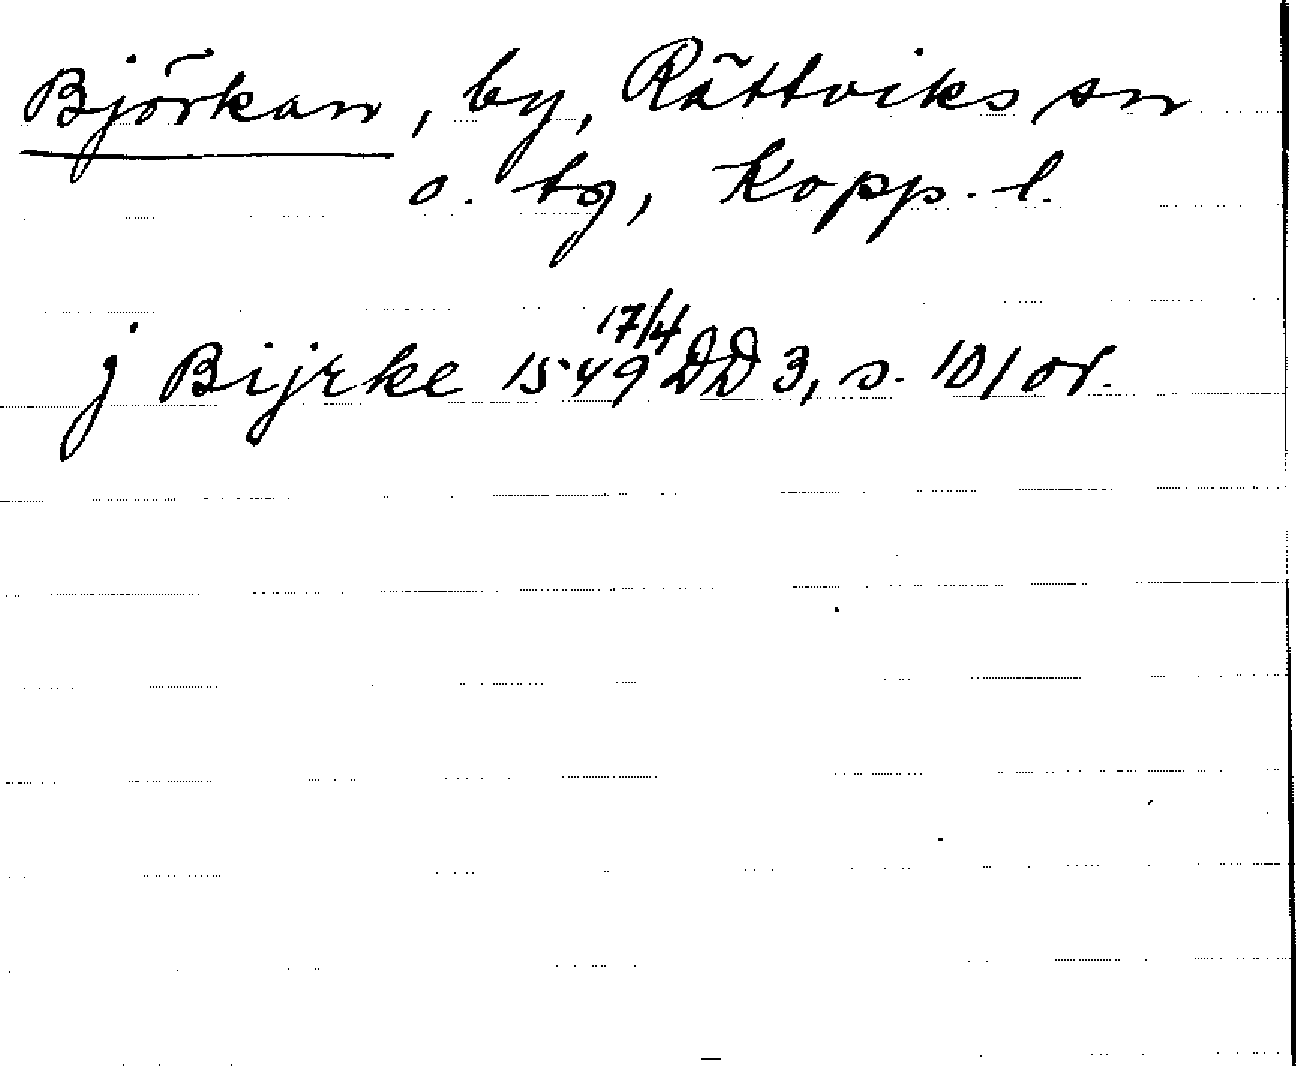 Björkan, by, Rättviks sn
o. tg, Kopp. l.
j Bijrke 1549 17/4 DD 3, s. 101 or.